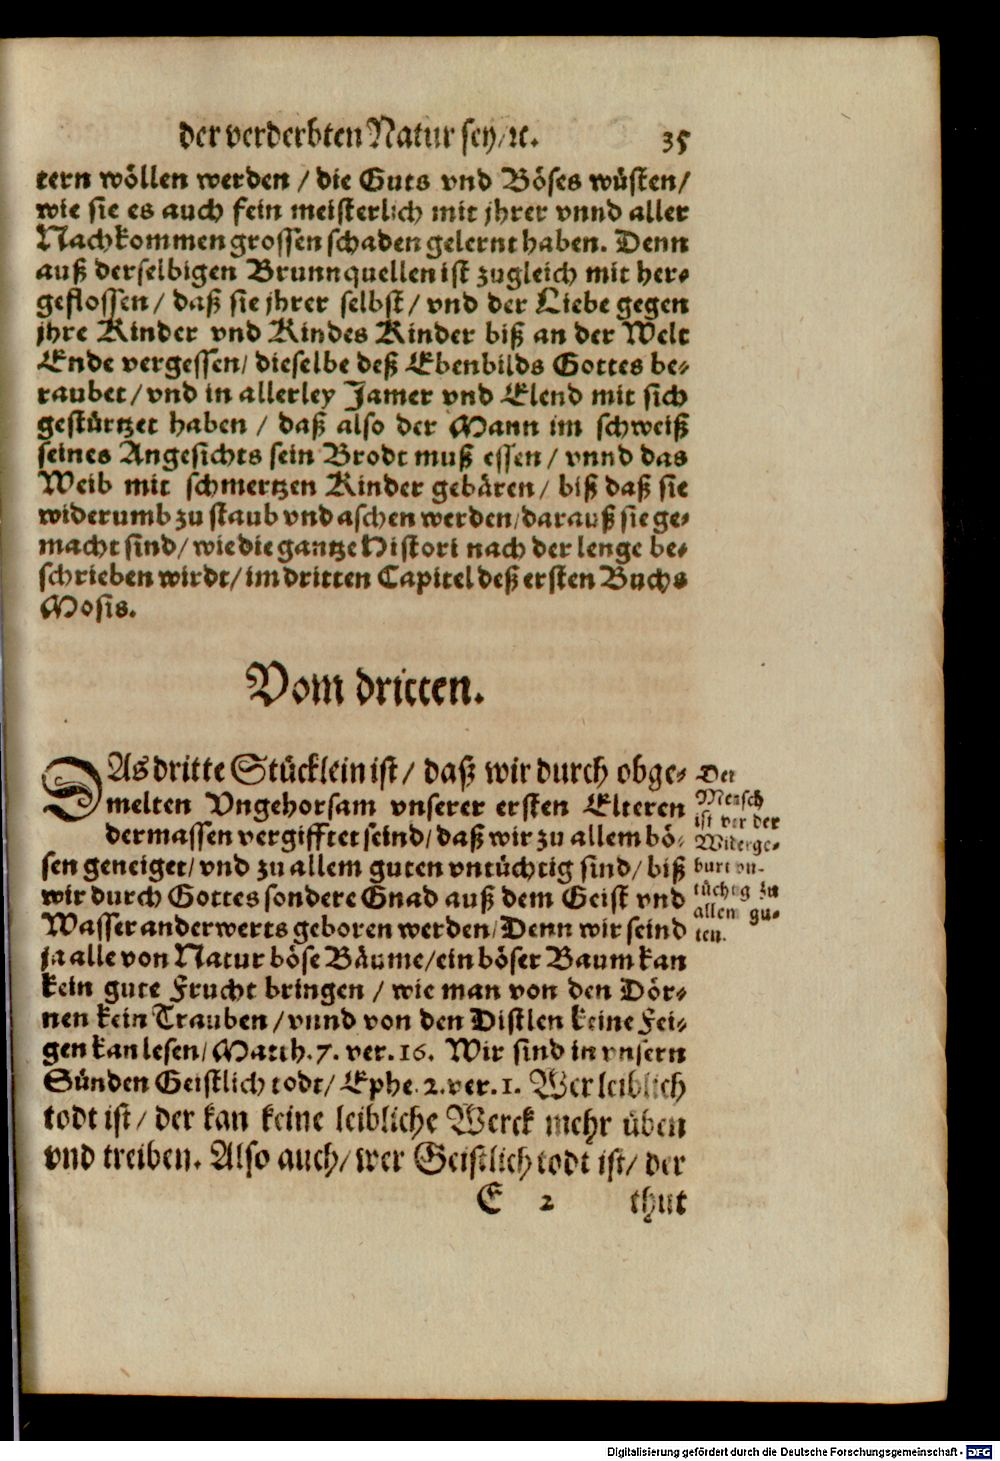 der verderbten Natur sey/ꝛc. 35
tern wöllen werden / die Guts vnd Böses wüsten/
wie sie es auch fein meisterlich mit jhrer vnnd aller
Nachkommen grossen schaden gelernt haben. Denn
auß derselbigen Brunnquellen ist zugleich mit her-
geflossen / daß sie jhrer selbst / vnd der Liebe gegen
jhre Kinder vnd Kindes Kinder biß an der Welt
Ende vergessen/ dieselbe deß Ebenbilds Gottes be-
raubet / vnd in allerley Jamer vnd Elend mit sich
gestürtzet haben / daß also der Mann im schweiß
seines Angesichts sein Brodt muß essen / vnnd das
Weib mit schmertzen Kinder gebären / biß daß sie
widerumb zu staub vnd aschen werden/darauß sie ge-
macht sind/ wie die gantze Histori nach der lenge be-
schrieben wirdt/ im dritten Capitel deß ersten Buchs
Mosis.
Vom dritten.
DAs dritte Stücklein ist/ daß wir durch obge-
melten Vngehorsam vnserer ersten Elteren
dermassen vergifftet seind/ daß wir zu allem bö-
sen geneiget/ vnd zu allem guten vntüchtig sind/ biß
wir durch Gottes sondere Gnad auß dem Geist vnd
Wasser anderwerts geboren werden/ Denn wir seind
ja alle von Natur böse Bäume/ein böser Baum kan
kein gute Frucht bringen / wie man von den Dör-
nen kein Trauben / vnnd von den Distlen keine Fei-
gen kan lesen/ Matth. 7. ver. 16. Wir sind in vnsern
Sünden Geistlich todt/ Ephe. 2. ver. 1. Wer leiblich
todt ist/ der kan keine leibliche Werck mehr üben
vnd treiben. Also auch/ wer Geistlich todt ist/ der
E 2 thut
Der
Mensch
ist vor der
Widerge-
burt vn-
tüchtig zu
allem gu-
ten.
Digitalisierung gefördert durch die Deutsche Forschungsgemeinschaft - DFG